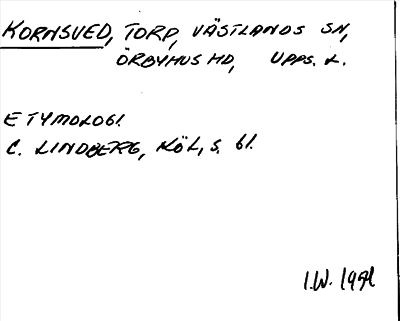 KORNSVED, TORP, VÄSTLANDS SN,
ÖRBYHUS HD, UPPS. L.
ETYMOLOGI.
C. LINDBERG, KÖL, S. 61.
I.W. 1991